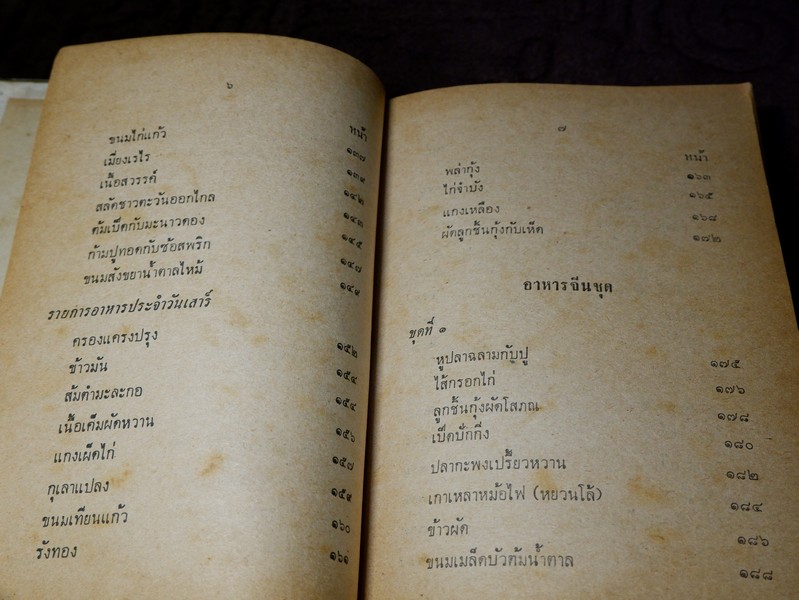 ๖
หน้า
ขนมไก่แก้ว ๑๓๗
เมี่ยงเรไร ๑๓๙
เนื้อสวรรค์ ๑๔๒
สลัดชาวตะวันออกไกล ๑๔๓
ต้มเป็ดกับมะนาวดอง ๑๔๕
ก้ามปูทอดกับซ้อสพริก ๑๔๗
ขนมสังขยาน้ำตาลไหม้ ๑๔๙
รายการอาหารประจำวันเสาร์
ครองแครงปรุง ๑๕๒
ข้าวมัน ๑๕๔
ส้มตำมะละกอ ๑๕๔
เนื้อเค็มผัดหวาน ๑๕๖
แกงเผ็ดไก่ ๑๕๗
กุเลาแปลง ๑๕๙
ขนมเทียนแก้ว ๑๖๐
รังทอง ๑๖๑
๗
หน้า
พล่ากุ้ง ๑๖๓
ไก่จำบัง ๑๖๕
แกงเหลือง ๑๖๘
ผัดลูกชิ้นกุ้งกับเห็ด ๑๗๒
อาหารจีนชุด
ชุดที่ ๑
หูปลาฉลามกับปู ๑๗๕
ไส้กรอกไก่ ๑๗๖
ลูกชิ้นกุ้งผัดโสภณ ๑๗๘
เป็ดปักกิ่ง ๑๘๐
ปลากะพงเปรี้ยวหวาน ๑๘๒
เกาเหลาหม้อไฟ (หยวนโล้) ๑๘๔
ข้าวผัด ๑๘๖
ขนมเมล็ดบัวต้มน้ำตาล ๑๘๘